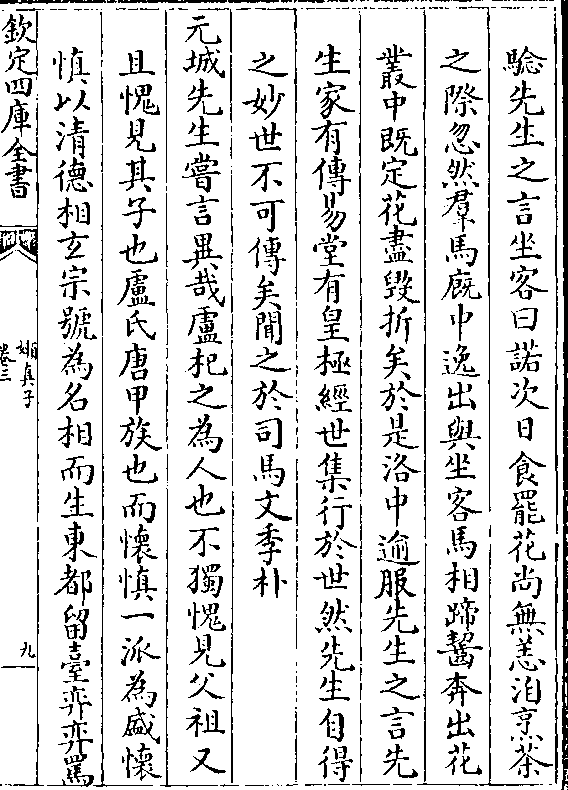 驗先生之言坐客曰諾次日食罷花尚無恙洎烹茶
之際忽然羣馬厩中逸出與坐客馬相蹄齧奔出花
叢中既定花盡毀折矣於是洛中逾服先生之言先
生家有傳易堂有皇極經世集行於世然先生自得
之妙世不可傳矣聞之於司馬文季朴
元城先生嘗言異哉盧杞之為人也不獨愧見父祖又
且愧見其子也盧氏唐甲族也而懷慎一派為盛懷
慎以清德相玄宗號為名相而生東都留臺弈弈罵
欽定四庫全書
嬾真子
卷三
九